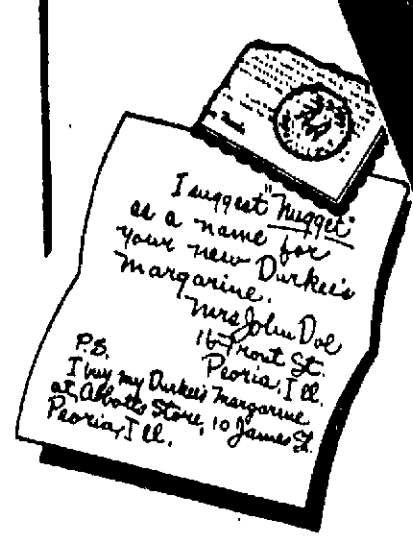 I suggest "Nugget"
as a name for
your new Durkee's
Margarine.
Mrs John Doe
16 Front St.
Peoria, Ill.
P.S.
I buy my Durkee's Margarine
at Abbott's Store, 10 James St.
Peoria, Ill.